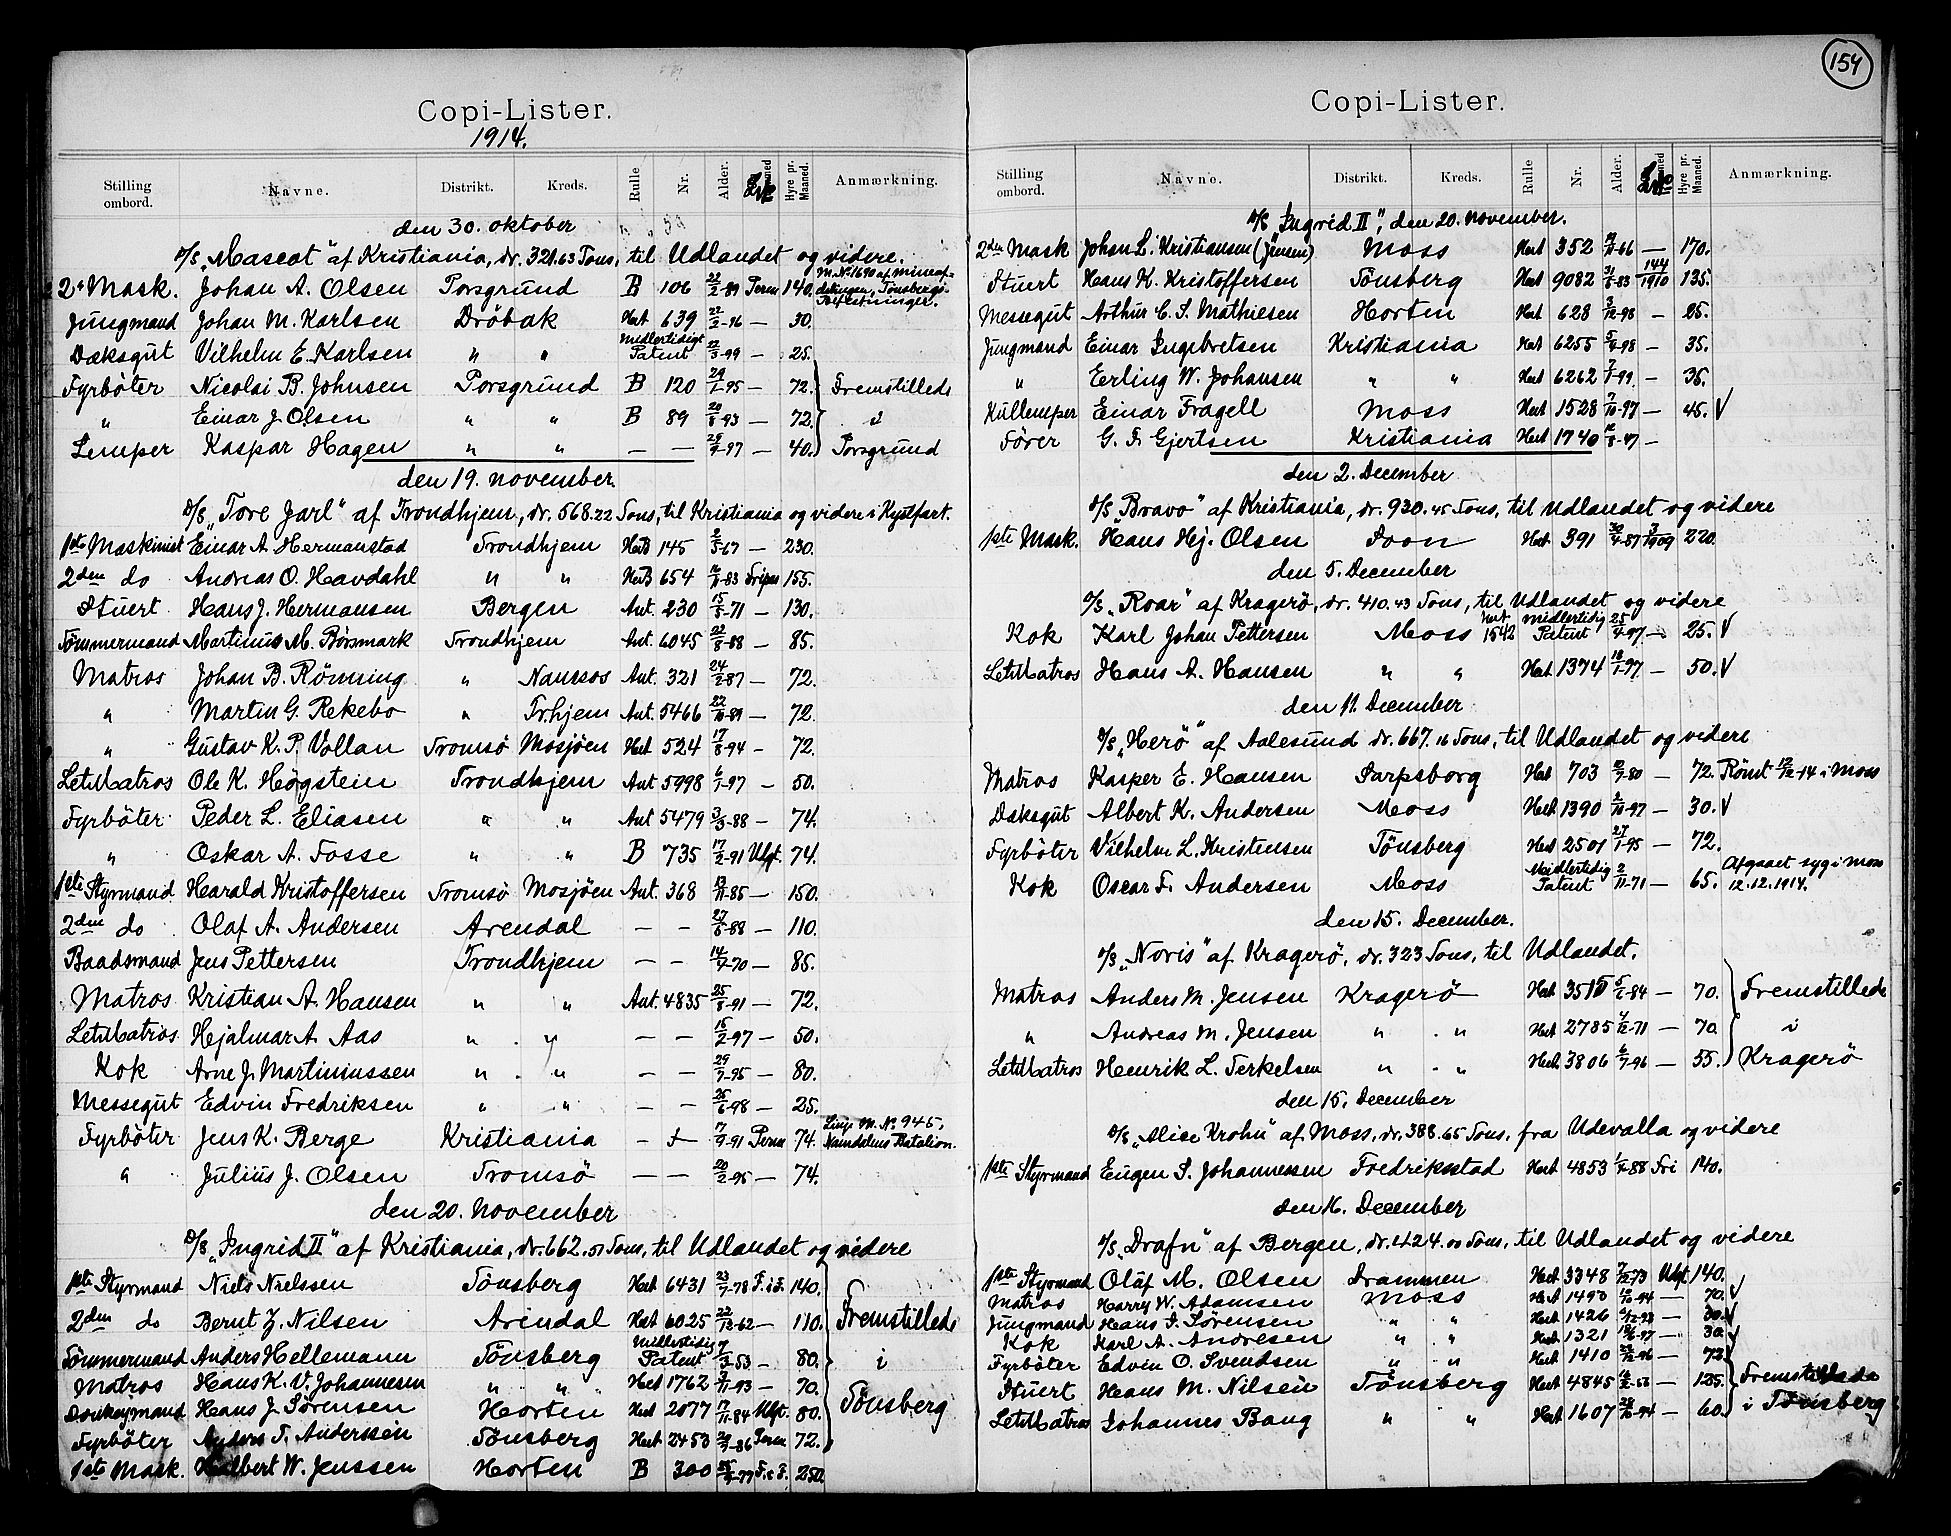 154
Copi-Lister.
1914.
Stilling ombord. Navne. Distrikt. Kreds. Rulle Nr. Alder. Hyre pr. Maaned. Anmærkning.
den 30. oktober
D/S „Mascot" af Kristiania, dr. 321.63 Tons, til Udlandet og videre.
2. Mask. Johan A. Olsen Porsgrund B 106 22/2-89 Perm 140. M. No 1690 af mineafdelingen, Tønsbergs Befæstninger.
Jungmand Johan M. Karlsen Dröbak Hovt 639 22/2-96 — 30.
Dæksgut Vilhelm E. Karlsen " " midlertidigt Patent 12/3-99 — 25.
Fyrböter Nicolai B. Johnsen Porsgrund B 120 29/1-95 — 72. Fremstilleds
" Einar J. Olsen " " B 89 20/8-93 — 72. i
Lemper Kaspar Hagen " " — — 29/7-97 — 40. Porsgrund
den 19. november.
D/S „Tore Jarl" af Trondhjem, dr. 568.22 Tons, til Kristiania og videre i Kystfart.
1ste Maskinist Einar A. Hermanstad Trondhjem HovtB 145 2/5-67 — 230.
2den do Andreas O. Havdahl " " HovtB 654 16/11-83 Fripas 155.
Stuert Hans J. Hermansen Bergen Ant. 230 15/8-71 — 130.
Tömmermand Martinus M. Börsmark Trondhjem Ant. 6045 22/8-88 — 85.
Matros Johan B. Rönning " Namsos Ant. 321 24/2-87 — 72.
" Martin G. Rekebo " Tr.hjem Ant. 5466 22/10-89 — 72.
" Gustav K. P. Vollan Tromsö Mosjöen Hovt 524 17/8-94 — 72.
LetMatros Ole K. Högstein Trondhjem Ant 5998 6/1-97 — 50.
Fyrböter Peder L. Eliasen " " Ant 5479 3/3-88 — 74.
" Oskar A. Fosse " " B 735 17/2-91 Udgt. 74.
1ste Styrmand Harald Kristoffersen Tromsö Mosjöen Ant. 368 13/11-85 — 150.
2den do Olaf A. Andersen Arendal — — 27/6-88 — 110.
Baadsmand Jens Pettersen Trondhjem — — 14/7-70 — 85.
Matros Kristian A. Hansen " " Ant. 4835 25/8-91 — 72.
LetMatros Hejalmar A. Aas " " — — 16/2-97 — 50.
Kok Arne J. Martiniussen " " — — 29/7-95 — 80.
Messegut Edvin Fredriksen " " — — 25/6-98 — 25.
Fyrböter Jens K. Berge Kristiania — — 7/9-91 Perm 74. Linje M. No 945, Namdalens Batalion.
" Julius J. Olsen Tromsö — — 20/2-95 — 74.
den 20. November
D/S „Ingrid II" af Kristiania, dr. 662.51 Tons, til Udlandet og videre
1ste Styrmand Niels Nielssen Tönsberg Hovt 6431 23/7-78 F. i F. 140.
2den do Bernt Z. Nilsen Arendal Hovt 6025 22/12-62 — 110. Fremstilleds
Tömmermand Anders Hellemann Tönsberg midlertidig Patent 7/3-53 — 80. i
Matros Hans K. V. Johannesen " " Hovt 1762 3/11-93 — 70.
Donkeymand Hans J. Sörensen Horten Hovt 2077 17/11-84 Udgt. 80. Tönsberg
Fyrböter Anders T. Anderssen Tönsberg Hovt 2453 29/7-86 Perm 72.
1ste Mask. Halbert W. Jenssen Horten B 300 25/7-77 F. i F. 250.
Copi-Lister.
Stilling ombord. Navne. Distrikt. Kreds. Rulle Nr. Alder. Hyre pr. Maaned. Anmærkning.
D/S „Ingrid II", den 20. november.
2den Mask Johan L. Kristiansen (Jensen) Moss Hovt 352 -66 — 170.
Stuert Hans K. Kristoffersen Tönsberg Hovt 9082 31/8-83 144/1910 135.
Messegut Arthur C. S. Mathiesen Horten Hovt 628 3/12-98 — 25.
Jungmand Einar Ingebretsen Kristiania Hovt 6255 5/8-98 — 35.
" Erling W. Johansen " " Hovt 6262 -99 — 35.
Kullemper Einar Fragell Moss Hovt 1528 7/10-97 — 45. V
Förer G. F. Gjertsen Kristiania Hovt 1740 -47 —
den 2. December
D/S „Bravo" af Kristiania, dr. 930.45 Tons, til Udlandet og videre
1ste Mask. Hans Hej. Olsen Soon Hovt 391 30/4-87 3/1909 220.
den 5. December
D/S „Roar" af Kragerö, dr. 410.43 Tons, til Udlandet og videre
Kok Karl Johan Pettersen Moss Hovt 1542 midlertidig Patent 25/4-97 — 25. V
LetMatros Hans A. Hansen " " Hovt 1374 18/1-97 — 50. V
den 11. December
D/S „Herö" af Aalesund dr. 667.16 Tons, til Udlandet og videre
Matros Kasper E. Hansen Sarpsborg Hovt 703 10/7-80 — 72. Römt 12/12-14 i Moss
Dæksgut Albert K. Andersen Moss Hovt 1390 2/10-97 — 30. V
Fyrböter Vilhelm L. Kristensen Tönsberg Hovt 2501 27/1-95 — 72.
Kok Oscar F. Andersen Moss Meidlertidig Patent 2/11-71 — 65. Afgaaet syg i Moss 12.12.1914.
den 15. December.
D/S „Noris" af Kragerö, dr. 323 Tons, til Udlandet.
Matros Anders M. Jensen Kragerö Hovt 3515 5/6-84 — 70. Fremstilleds
" Andreas M. Jensen " " Hovt 2785 4/12-71 — 70 i
LetMatros Henrik L. Terkelsen " " Hovt 3806 6/7-96 — 55. Kragerö
den 15. December
D/S „Alice Krohn" af Moss, dr. 388.65 Tons, fra Udevalla og videre
1ste Styrmand Eugen S. Johannessen Fredrikstad Hovt 4853 -88 Fri 140.
den 16. December
D/S „Drafn" af Bergen, dr. 424.00 Tons, til Udlandet og videre
1ste Styrmand Olaf M. Olsen Drammen Hovt 3348 7/12-73 Udgt 140.
Matros Harry W. Adamsen Moss Hovt 1493 12/10-94 — 70. V
Jungmand Hans J. Sörensen " " Hovt 1426 -98 — 30. V
Kok Karl A. Andresen " " Hovt 1321 18/6-97 — 30. V
Fyrböter Edvin O. Svendsen " " Hovt 1410 22/12-96 — 72.
Stuert Hans M. Nilsen Tönsberg Hovt 4845 -53 — 135. Fremstilleds
LetMatros Johannes Bang " " Hovt 1607 28/10-94 — 60. i Tönsberg